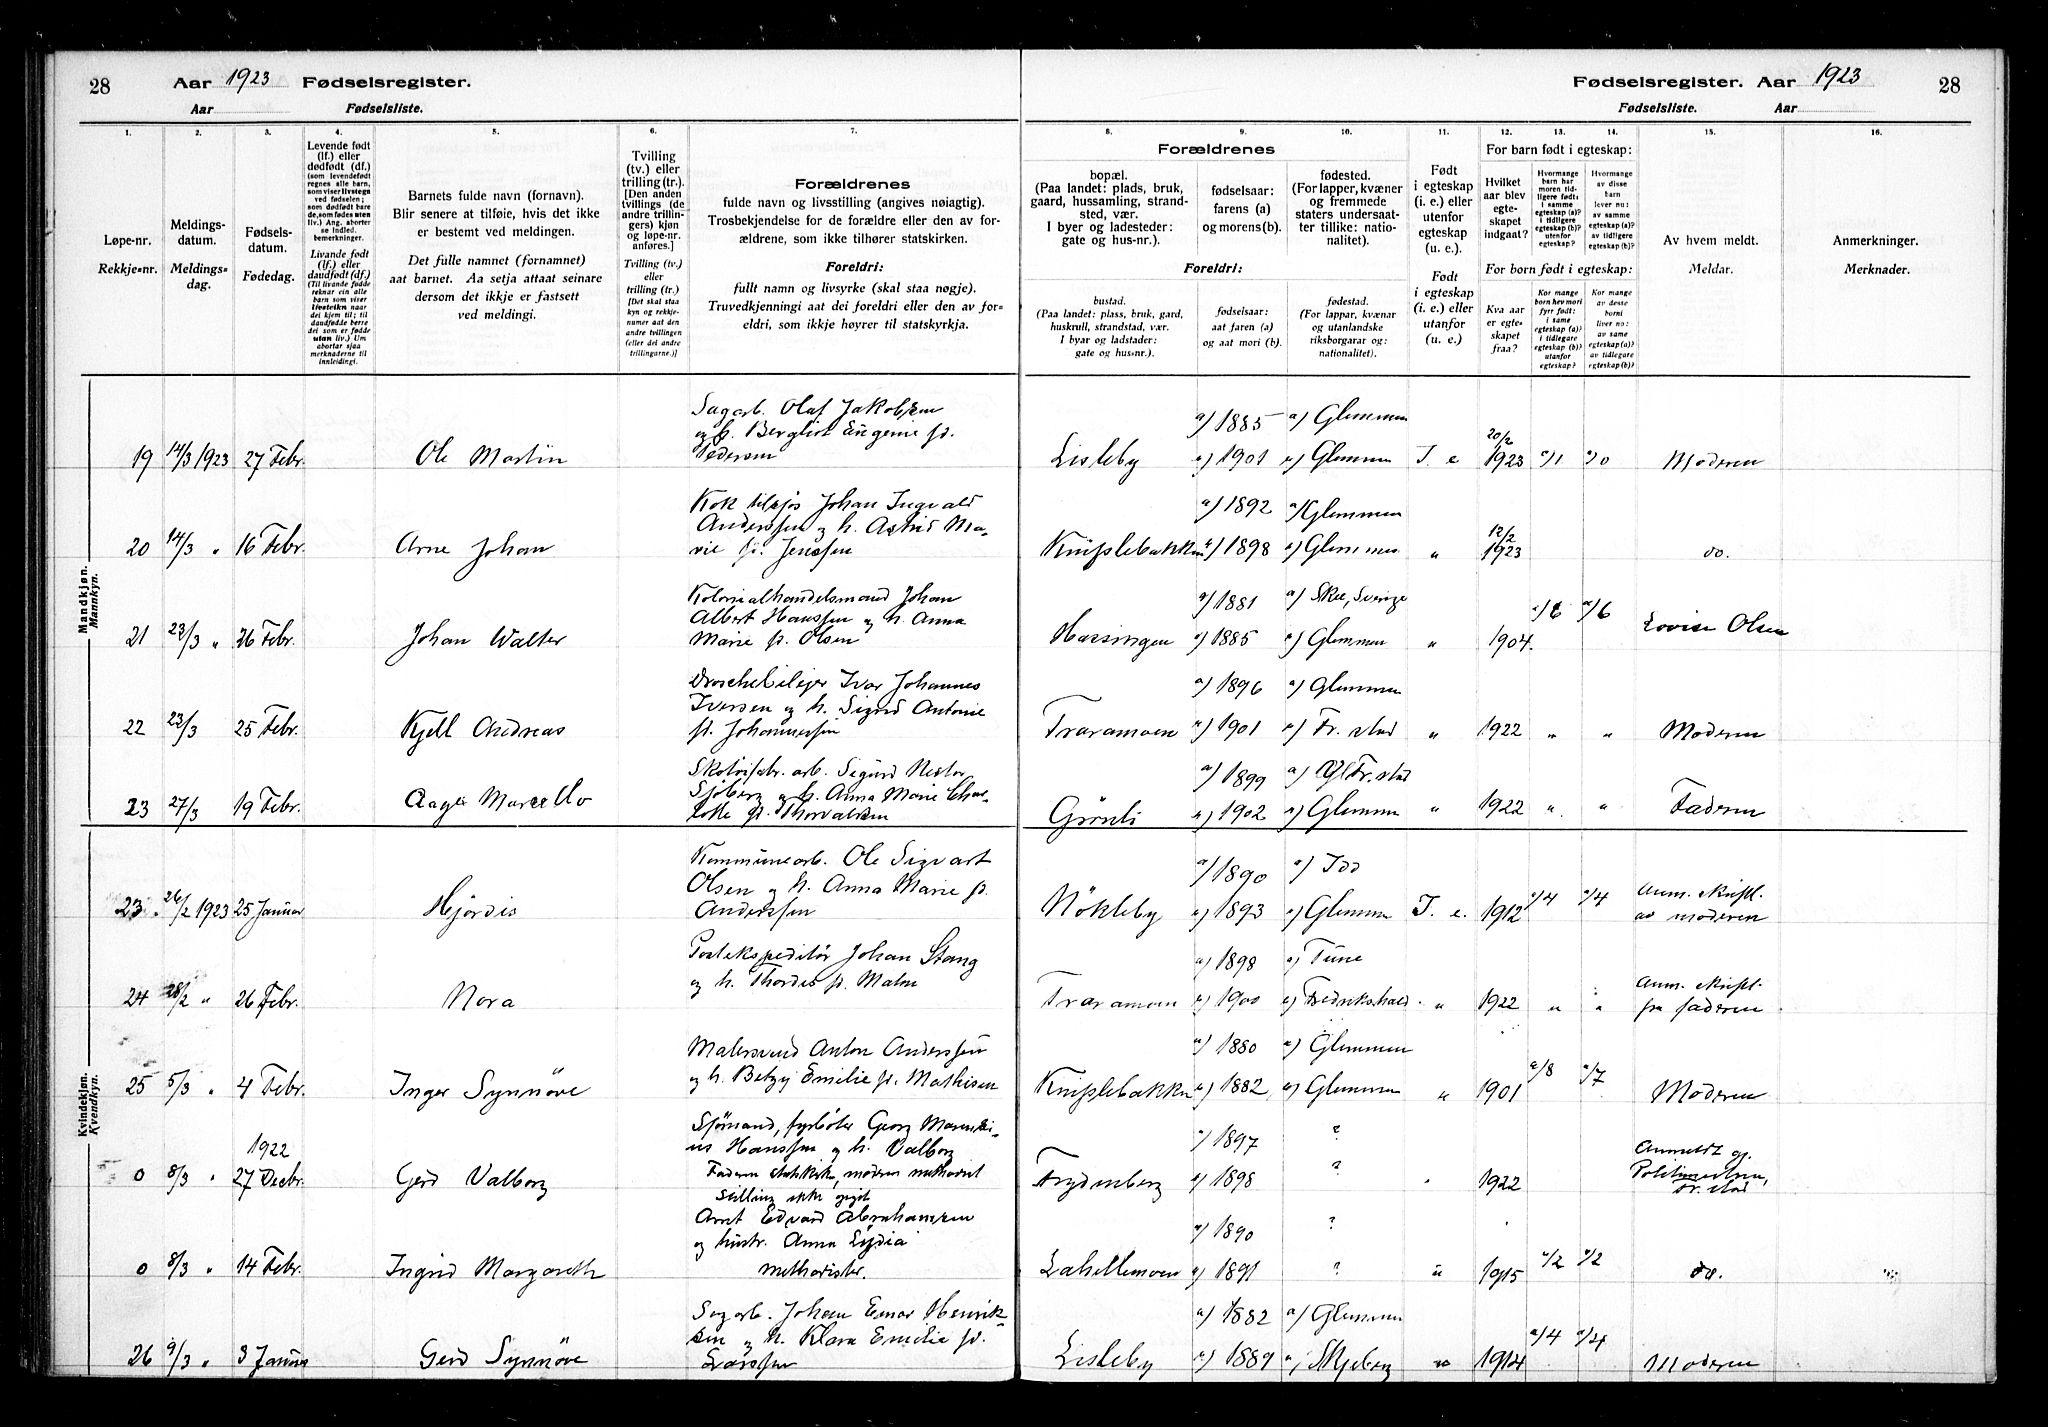 28 Aar 1923 Fødselsregister.
Aar Fødselsliste.
Fødselsregister. Aar 1923 28
Fødselsliste. Aar
1. 2. 3. 4. 5. 6. 7. 8. 9. 10. 11. 12. 13. 14. 15. 16.
Løpe-nr.
Rekkje-nr.
Meldings-
datum.
Meldings-
dag.
Fødsels-
datum.
Fødedag.
Levende født
(lf.) eller
dødfødt (df.)
(som levendefødt
regnes alle barn,
som viser livstegn
ved fødselen;
som dødfødt bare
de, som fødes uten
liv.) Ang. aborter
se indled.
bemerkninger.
Livande født
(lf.) eller
daudfødt (df.)
(Til livande fødde
reknar ein alle
barn som viser
livsteikn naar
dei kjem til; til
daudfødde berre
dei som er fødde
utan liv.) Um
abortar sjaa
merknaderne til
innleidingi.
Barnets fulde navn (fornavn).
Blir senere at tilføie, hvis det ikke
er bestemt ved meldingen.
Det fulle namnet (fornamnet)
aat barnet. Aa setja attaat seinare
dersom det ikkje er fastsett
ved meldingi.
Tvilling
(tv.) eller
trilling (tr.).
[Den anden
tvillings (de
andre trillin-
gers) kjøn
og løpe-nr.
anføres.]
Tvilling (tv.)
eller
trilling (tr.)
[Det skal staa
kyn og rekkje-
numer aat den
andre tvillingen
(eller dei andre
trillingarne.)]
Forældrenes
fulde navn og livsstilling (angives nøiagtig).
Trosbekjendelse for de forældre eller den av for-
ældrene, som ikke tilhører statskirken.
Foreldri:
fullt namn og livsyrke (skal staa nøgje).
Truvedkjenningi aat dei foreldri eller den av for-
eldri, som ikkje høyrer til statskyrkja.
Forældrenes
bopæl.
(Paa landet: plads, bruk,
gaard, hussamling, strand-
sted, vær.
I byer og ladesteder:
gate og hus-nr.).
fødselsaar:
farens (a)
og morens (b).
fødested.
(For lapper, kvæner
og fremmede
staters undersaat-
ter tillike: natio-
nalitet).
Foreldri:
bustad.
(Paa landet: plass, bruk, gard,
huskrull, strandstad, vær.
I byar og ladstader:
gate og hus-nr.).
fødselsaar:
aat faren (a)
og aat mori (b).
fødestad.
(For lappar, kvænar
og utanlandske
riksborgarar og:
nationalitet).
Født
i egteskap
(i. e.) eller
utenfor
egteskap
(u. e.).
Født
i egteskap
(i. e.) eller
utanfor
egteskap
(u. e.)
For barn født i egteskap:
Hvilket
aar blev
egte-
skapet
indgaat?
Hvormange
barn har
moren tid-
ligere født:
i samme
egteskap (a)?
i tidligere
egteskap (b)?
utenfor
egteskap?
Hvormange
av disse
barn
lever nu:
av samme
egteskap (a)?
av tidligere
egteskap (b)?
For born født i egteskap:
Kva aar
er egte-
skapet
fraa?
Kor mange
born hev mori
fyrr født:
i same
egteskap (a)?
i tidlegare
egteskap (b)?
utanfor
egteskap?
Kor mange
av desse
borni
liver no:
av same
egteskap (a)?
av tidlegare
egteskap (b)?
Av hvem meldt.
Meldar.
Anmerkninger.
Merknader.
Mandkjøn.
Mannkyn.
Sagarb. Olaf Jakobsen a) 1885 a) Glemmen
og h. Bergliot Eugenie f. 20/2
19 14/3 1923 27 Febr. Ole Martin Pedersen Lisleby b) 1901 b) Glemmen I. e. 1923 a/1 a/0 Moderen
Kok tilsjøs Johan Ingvald a) 1892 a) Glemmen
Anderssen og h. Astrid Ma- 12/2
20 14/3 " 16 Febr. Arne Johan rie f. Jenssen b) 1898 b) Glemmen " 1923 do.
Kolonialhandelsmand Johan a) 1881 a) Skee, Sverige
Albert Hanssen og h. Anna a/6 a/6
21 23/3 " 26 Febr. Johan Walter Marie f. Olsen Hassingen b) 1885 b) Glemmen " 1904. Lovise Olsen
Droschebileier Ivar Johannes a) 1896 a) Glemmen
Iversen og h. Sigrid Antonie
22 23/3 25 Febr. Kjell Andreas f. Johannessen Traramoen b) 1901 b) Fr. stad " 1922 " " Moderen
Skotøifabr. arb. Sigurd Nestor a) 1899 a) Gl. Fr. stad
Sjøberg og h. Anna Marie Char-
23 27/3 19 Febr. Aage Marcello lotte f. Thorvaldsen Grønli b) 1902 b) Glemmen " 1922 " " Faderen
Kvindekjøn.
Kvendkyn.
Kommunearb. Ole Sigvart a) 1890 a) Idd
Olsen og h. Anna Marie f. a/4 a/4 Anm. skriftl.
23 26/2 1923 25 Januar Hjørdis Anderssen Nökleby b) 1893 b) Glemmen I. e. 1912 av moderen
Postekspeditør Johan Stang a) 1898 a) Tune
og h. Thordis f. Malm Anm. skriftl.
24 28/2 " 26 Febr. Nora Traramoen b) 1900 b) Fredrikshald " 1922 " " fra faderen
Malersvend Anton Anderssen a) 1880 a) Glemmen
og h. Betzy Emilie f. Mathisen a/8 a/7
25 5/3 " 4 Febr. Inger Synnöve b) 1882 b) Glemmen " 1901 Moderen
Sjømand, fyrbøter Georg a) 1897 ?
1922 Hanssen og h. Valborg Anmeldt gj.
0 8/3 " 27 Decbr. Gerd Valborg Faderen statskirke, moderen methodist Frydenberg b) 1898 ? " 1922 Politimesteren,
Fr. stad
Stilling ikke opgit
Arnt Edvard Abrahamsen a) 1890 ?
og hustr. Anna Lydia
0 8/3 " 14 Febr. Ingrid Margareth methodister. b) 1891 ? " 1915 a/2 a/2 do.
Sagarb. Johan Einar Henrik- a) 1882 a) Glemmen
sen og h. Klara Emilie f. a/4 a/4
26 9/3 " 3 Januar Gerd Synnöve Larssen Lisleby b) 1889 b) Skjeberg " 1914 Moderen